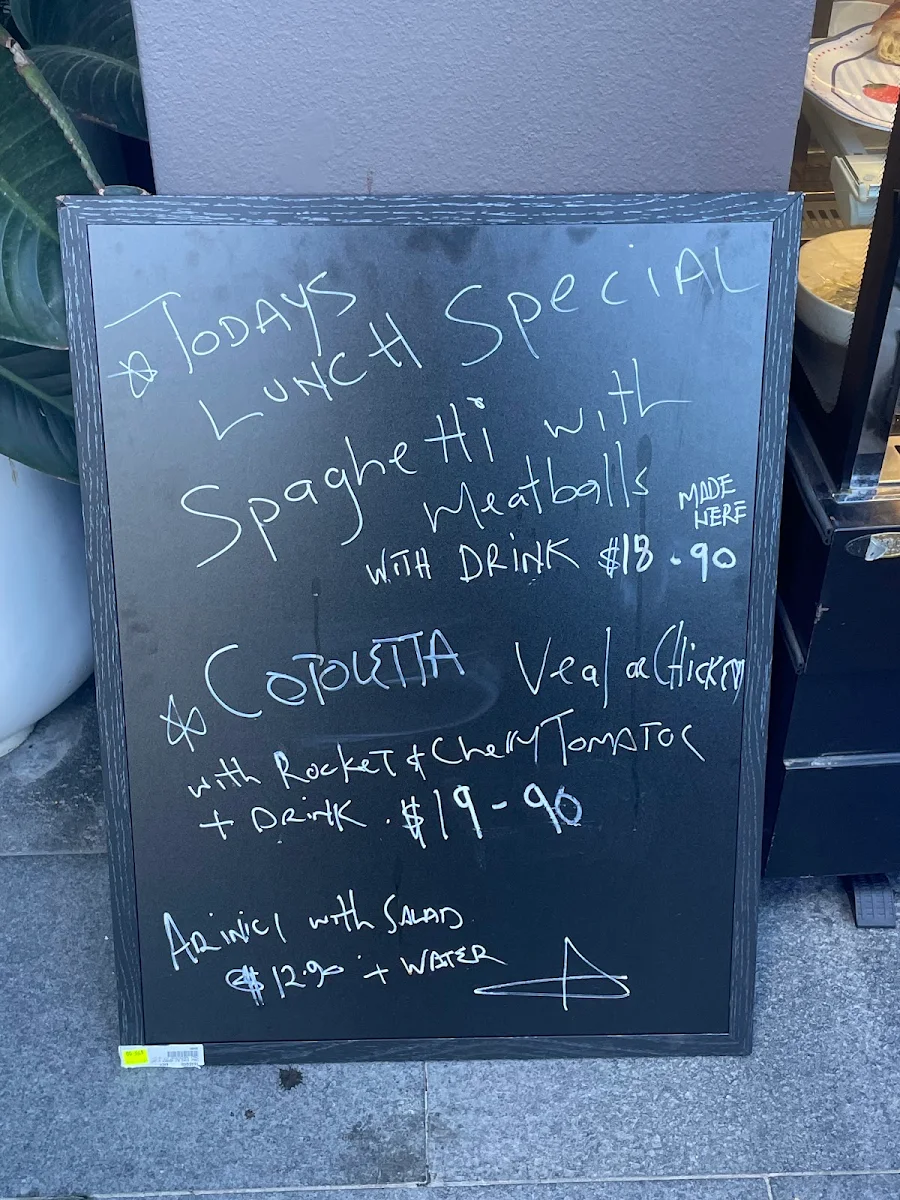 TODAYS
LUNCH SPeCIAL
SpagheTTi with
Meatballs MADE
HERE
WITH DRINK $18.90
COTOLETTA Veal or CHICKEN
with ROCKET & CherryTOMATOE
+ DRINK. $19-90
ARINICI with SALAD
$12.90 + WATER